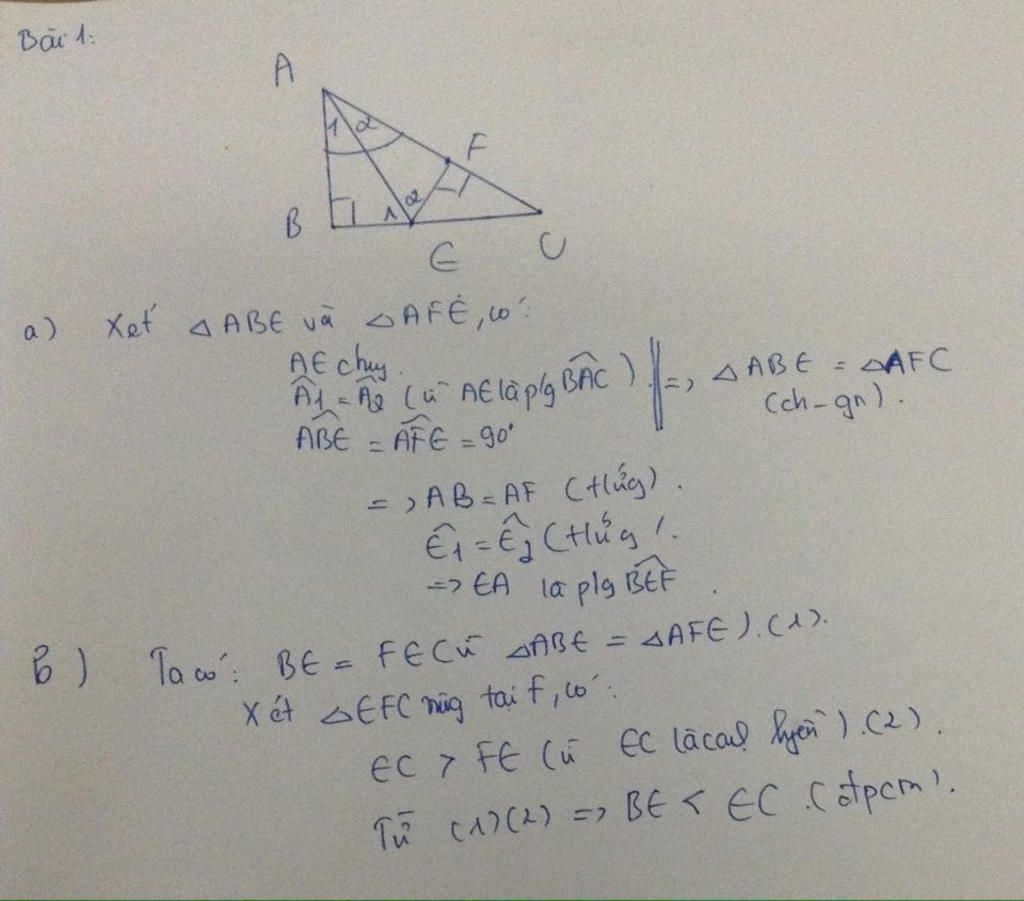 Bài 1:
A
1 2
F
B
1 2
E
C
a) Xét △ABE và △AFE, có:
AE chug
Â1 = Â2 (vì AE là p/g BAC) => △ABE = △AFC
(ch-gn).
ABE = AFE = 90°
=> AB = AF (t/ứg).
Ê1 = Ê2 (t/ứg).
=> EA là p/g BEF.
B) Ta có: BE = FE (vì △ABE = △AFE). (1).
Xét △EFC vuôg tại F, có:
EC > FE (vì EC là cạnh huyền). (2).
Từ (1)(2) => BE < EC. (đpcm).